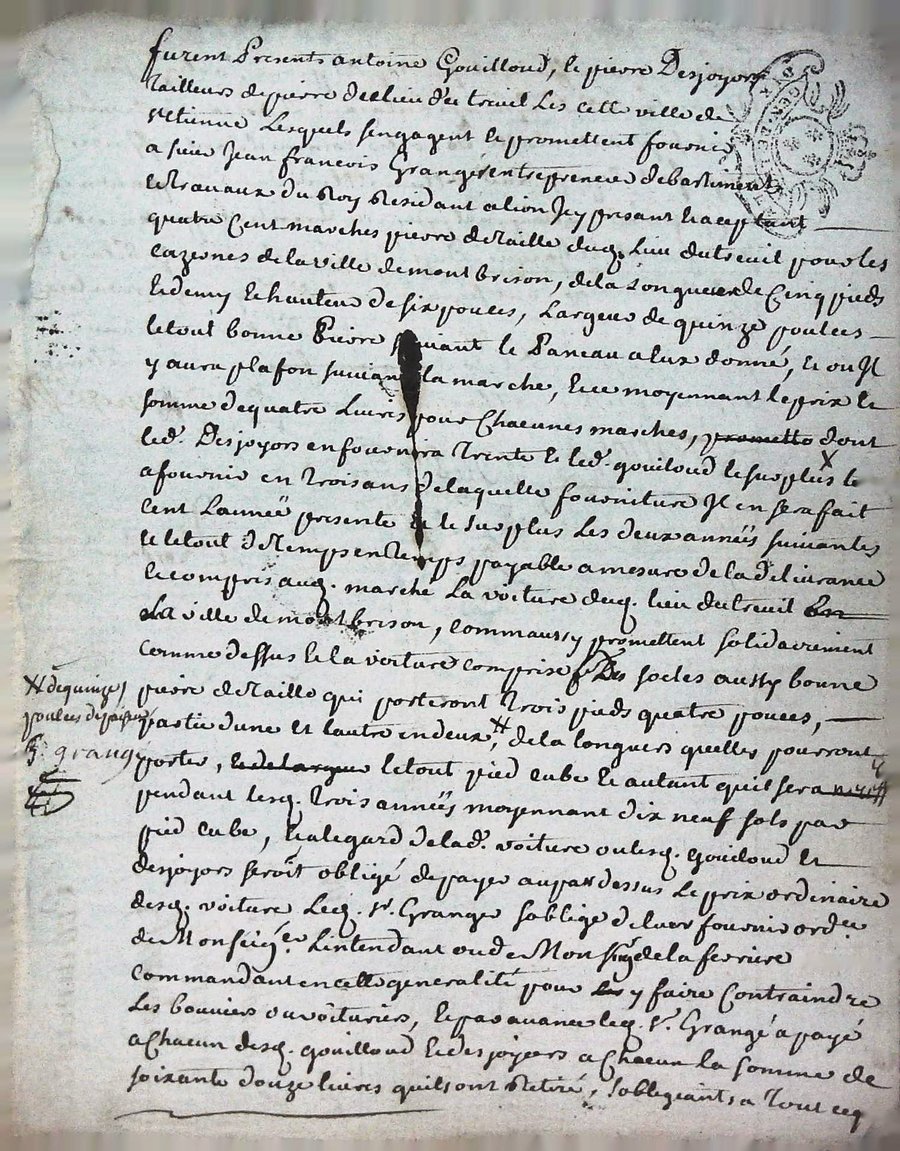 furent Presents antoine Gouilloud, le pierre Desjoyors
Tailleurs de pierre de ce lieu du treuil Les cette ville de
st etienne Lesquels sengagent le promettent fournir
a sieur Jean francois Granger entrepreneur de bastiments
et travaux du Roy Residant a lion Icy present et aceptant
quatre Cent marches pierre de taille dud. Lieu du treuil pour les
cazernes de la ville de montbrison, de la Longueur de Cinq pieds
et demy et hauteur de six pouces, Largeur de quinze poulces
le tout bonne Pierre suivant le Paneau a lux donné, et ou Il
y aura plafon suivant la marche, et ce moyennant le prix et
somme de quatre Livres pour Chacunes marches, prometto dont
led. Desjoyors en fournira Trente et led. gouiloud le surplus le
X
a fournir en trois ans de laquelle fourniture Il en sera fait
cent Lannéé presente et le surplus Les deux annéés suivantes
et le tout de temps en temps payable a mesure de la delivrance
et compris aud. marché La voiture dud. lieu du treuil En
La ville de montbrison, comm aussy promettent solidairement
comme dessus et la voiture comprise Des socles aussy bonne
pierre de taille qui porteront trois pieds quatre pouces,
partie dune et lautre en deux, # de la longuers quelles pourront
porter, et de largue le tout pied cube et autant quil sera
pendant lesd. trois annéés moyennant dix neuf sols par
pied cube, et a legard de lad. voiture ou lesd. gouiloud et
desjoyors seroit obligé de payer au par dessus Le prix ordinaire
desd. voiture Led. Sr. Granger soblige de luer fournir ordre
de Monseigr. Lintendant ou de Monsieur de la feriere
commandant en cette generalité pour les y faire Contraindre
Les bouviers ou voituriers, et par avance led. Sr. Grangé a payé
a Chacun desd. gouilloud et desjoyors a Chacun la somme de
soixante douze livres quils ont Retiré, sobligeants a Tout ceq
# de quinze
poulces depaisseur
J. grange